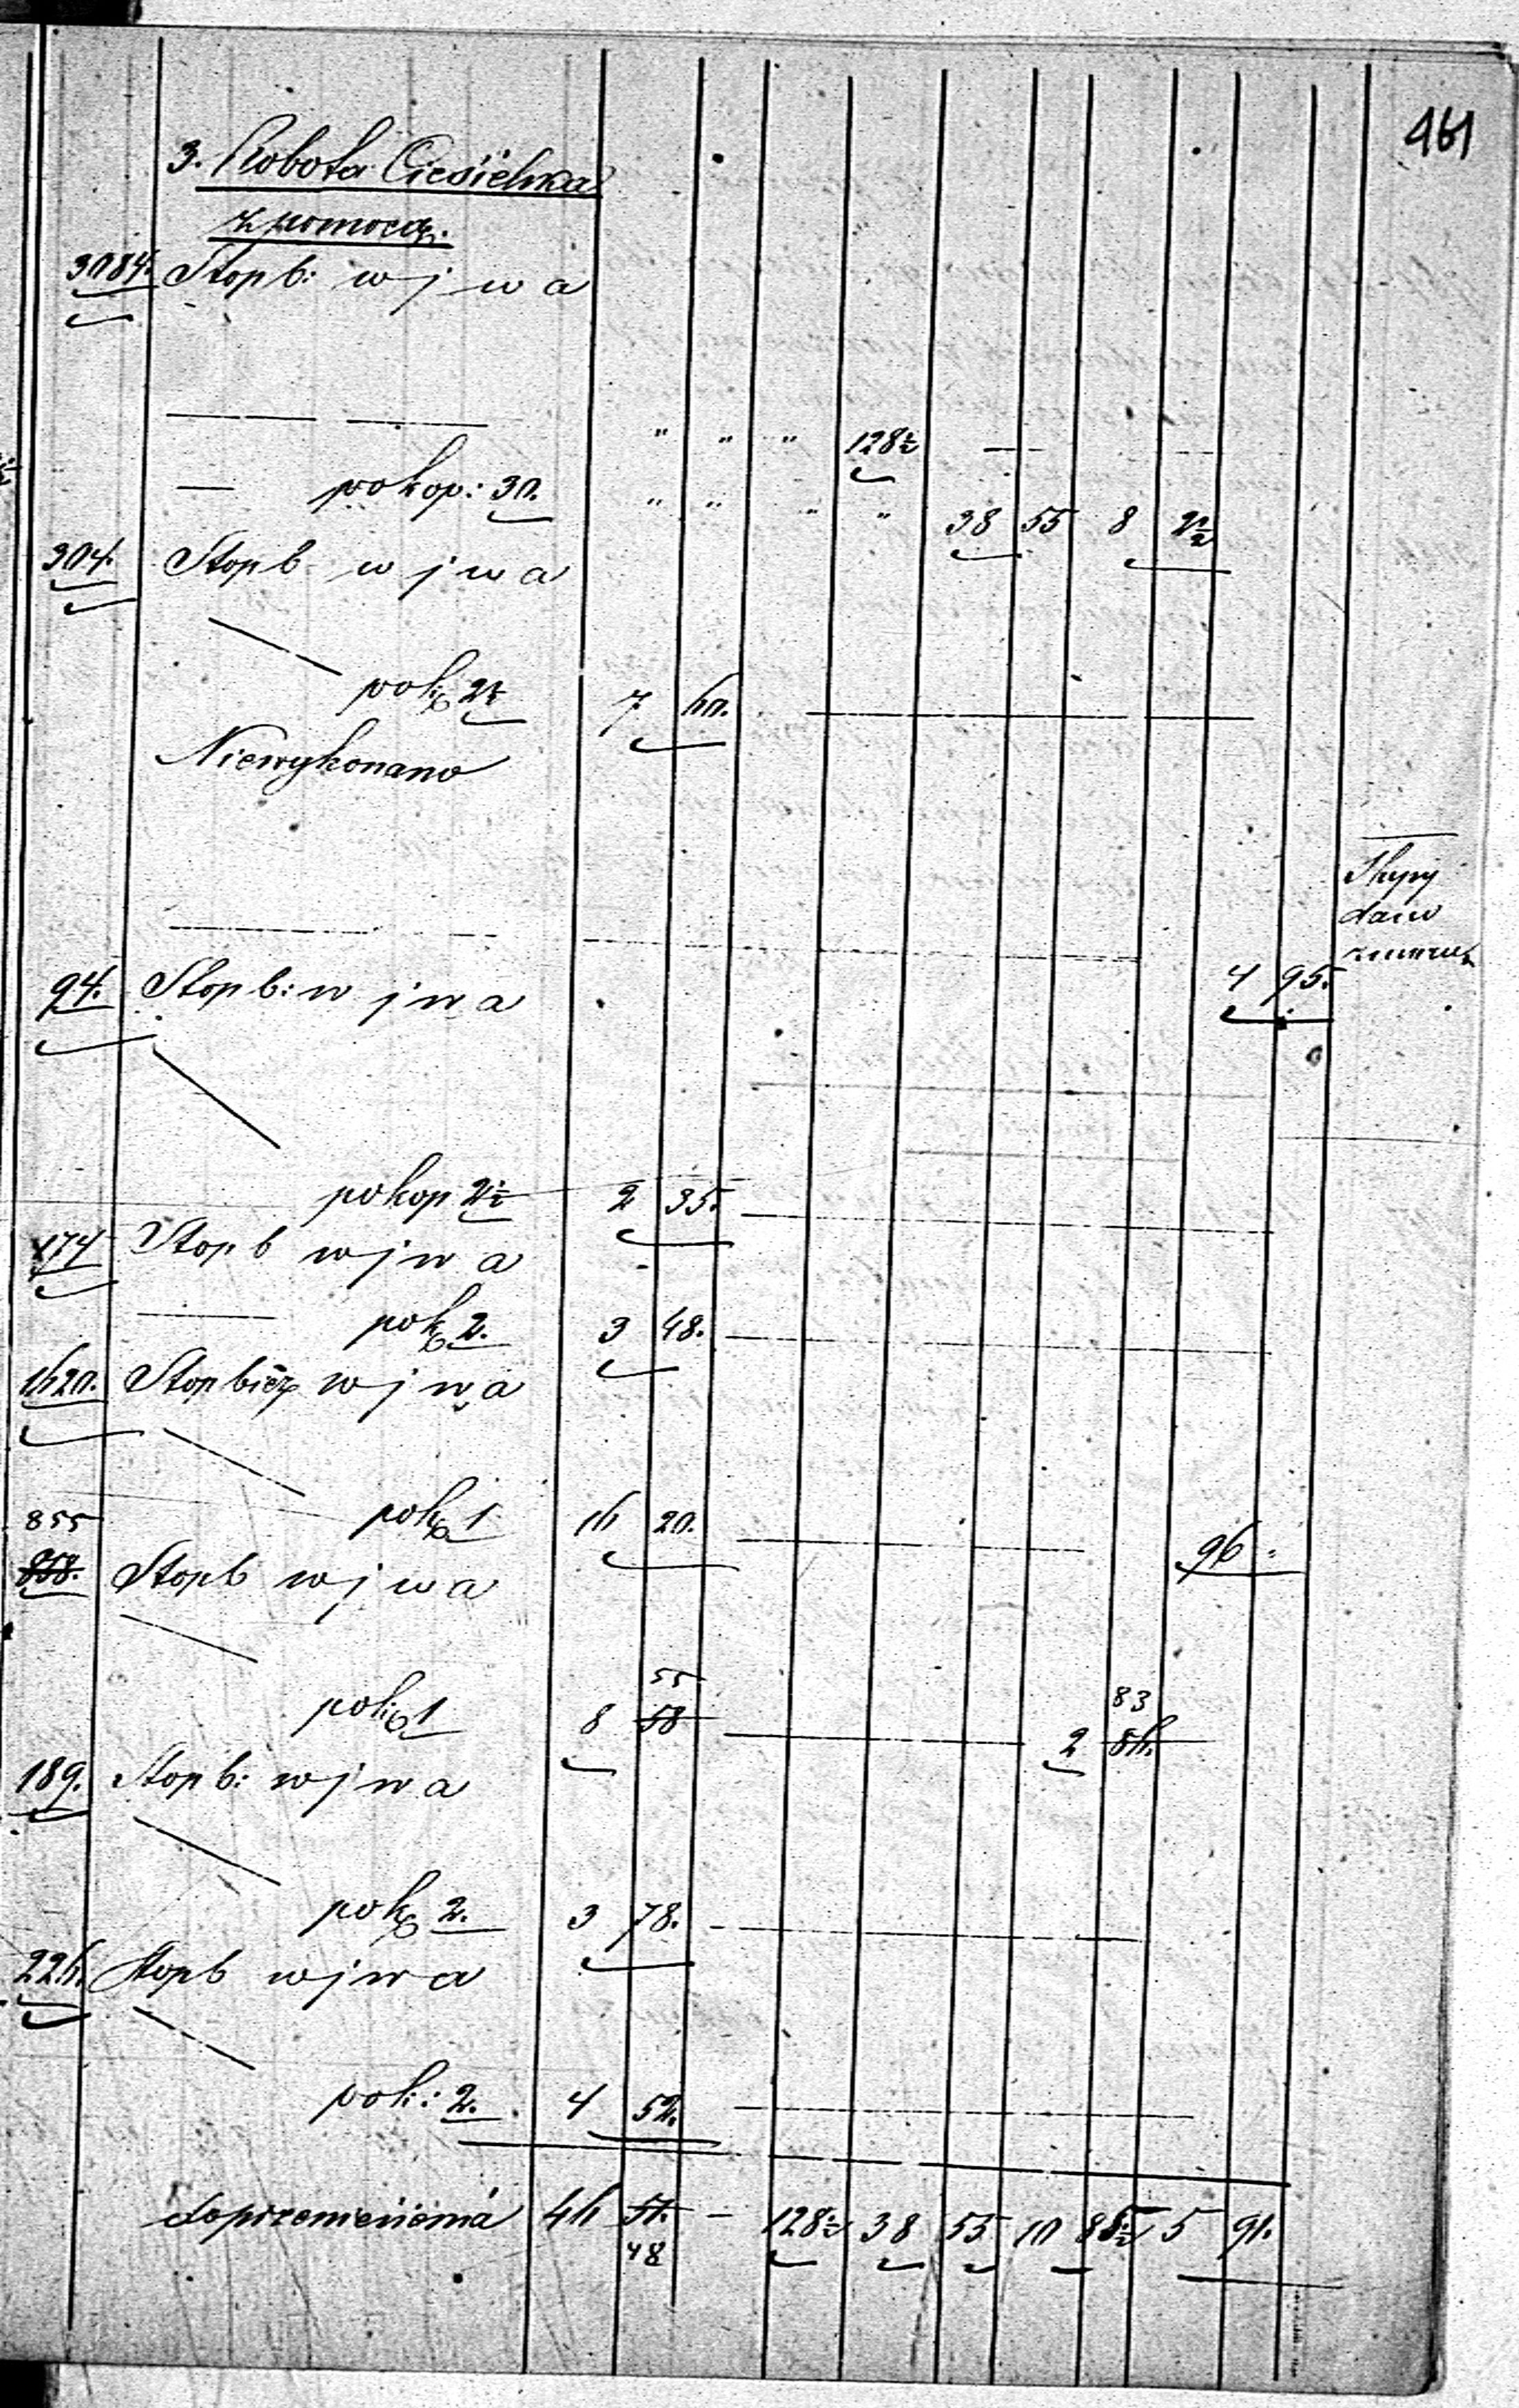 461
3. Robota Ciesielska
z pomocą.
3084. Stop b: w j w a
" " " 128½ — —
— po kop: 30. " " " " 38 55 8 2½
304. Stop b w j w a
po k. 2½ 7 60.
Niewykonano
94. Stop b: w j w a 4 95.
po kop 2½ 2 35.
174 Stop b w j w a
po k. 2. 3 48.
1620. Stop bież w j w a
po k. 1 16 20. 96
855
858. Stop b w j w a
55 83
po k. 1 8 58 2 86.
189. Stop b: w j w a
po k. 2. 3 78.
226. Stop b w j w a
po k: 2. 4 52.
do przeniesienia 46 51. — 128½ 38 55 10 85½ 5 91.
48